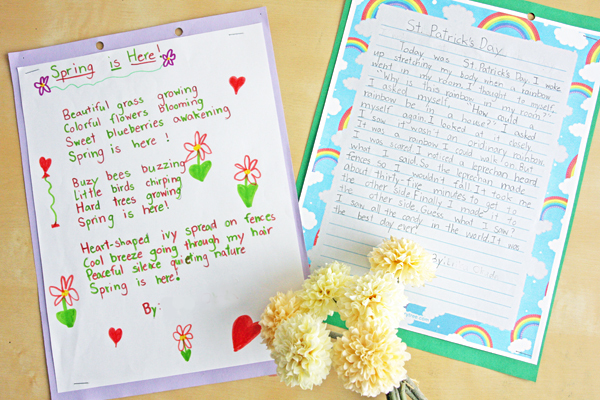 Spring is Here!
Beautiful grass growing
Colorful flowers blooming
Sweet blueberries awakening
Spring is here!
Buzy bees buzzing
Little birds chirping
Hard trees growing
Spring is here!
Heart-shaped ivy spread on fences
Cool breeze going through my hair
Peaceful silence quieting nature
Spring is here!
By:
St. Patrick's Day
Today was St. Patrick's Day. I woke
up stretching my body when a rainbow
went in my room. I thought to myself
"Why is this rainbow in my room?"
I asked myself. "How could a
rainbow be in a house?" I asked
myself again. I looked at it closely.
I saw it wasn't an ordinary rainbow.
"I was a rainbow I could walk on. But
I was scared I noticed a leprechan board
what I said. So the leprechan made
fences so I wouldn't fall. It took me
about thirty five minutes to get to
the other side. Finally I made it to
the other side. Guess what I saw?
I saw all the candy in the world. It was
the best day ever!
By: